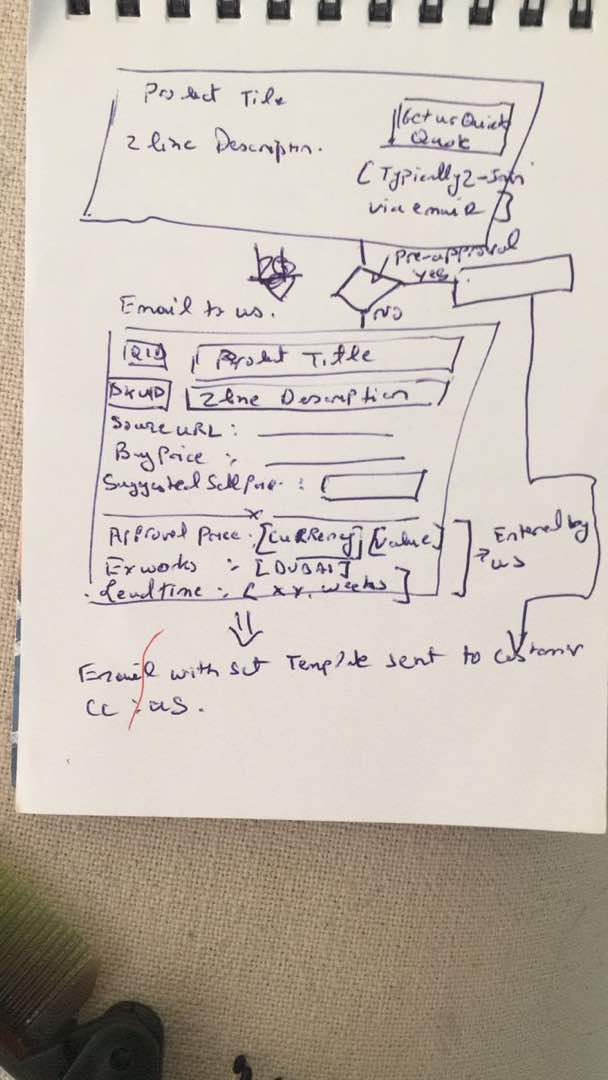 Product Title
2 line Description.
Get us Quick
Quote
[Typically 2-5min
via email]
Pre-approval
yes
NO
Email to us.
Product Title
SKUID
2 line Description
Source URL :
Buy Price :-
Suggested Sell Price :
x
Approval Price :- [Currency] [Value]
Ex works :- [DUBAI]
Lead time :- [xx. weeks]
Entered by
us
Email with set Template sent to customer
CC : us.